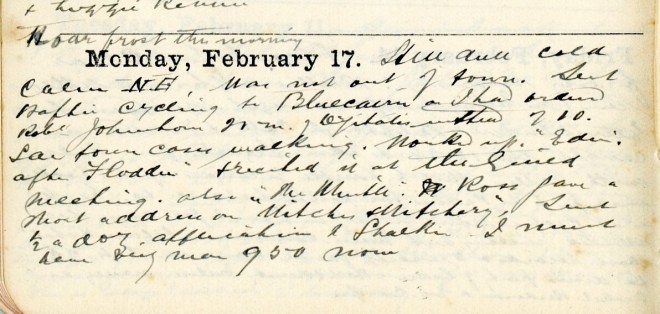 Hoar frost this morning
Monday, February 17. Still dull cold
calm N.E. Was not out of town. Sent
cycling to Bluecairn as I had ordered
Robt Johnstone m. of Digitalis instead of 10.
Saw town cases walking. Worked up "Edin.
after Flodden" & recited it at the Guild
meeting. also "The Whistle". Ross gave a
short address on Witches & Witchery". Sent
a doz. application to Shalkr. I must
have Bug man 950 now